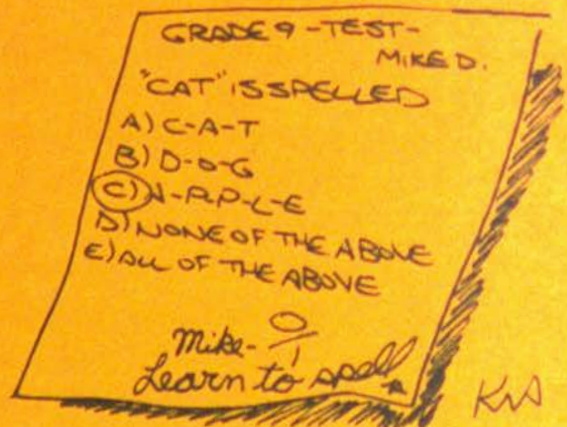 GRADE 9 - TEST -
MIKE D.
"CAT" IS SPELLED
A) C-A-T
B) D-O-G
C) A-P-P-L-E
D) NONE OF THE ABOVE
E) ALL OF THE ABOVE
Mike - 0/1
Learn to spell